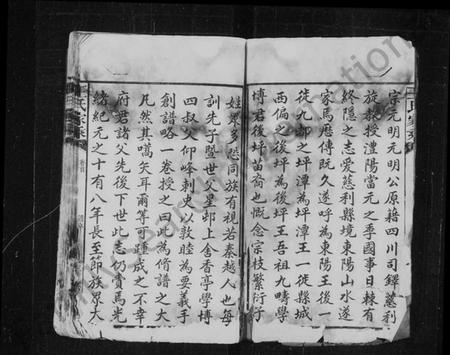 宗元明元明公原籍四川司鐸慈利
旋教授澧陽當元之季國事日棘有
終隱之志愛慈利縣境東陽山水遂
家焉歷傳既久遂呼為東陽王後一
徙九都之坪潭為坪潭王一徙縣城
西偏之後坪為後坪王吾祖九疇學
博君後坪苗裔也慨念宗枝繁衍子
姓眾多恐同族有視若秦越人也每
訓先子暨世父星邨上舍香亭學博
四叔父仰峰刺史以敦睦為要義手
創譜略一卷授之曰此為脩譜之大
凡然其嚆矢耳爾等可踵成之不幸
府君諸父先後下世此志仍賫焉光
緒紀元之十有八年長至節族眾大